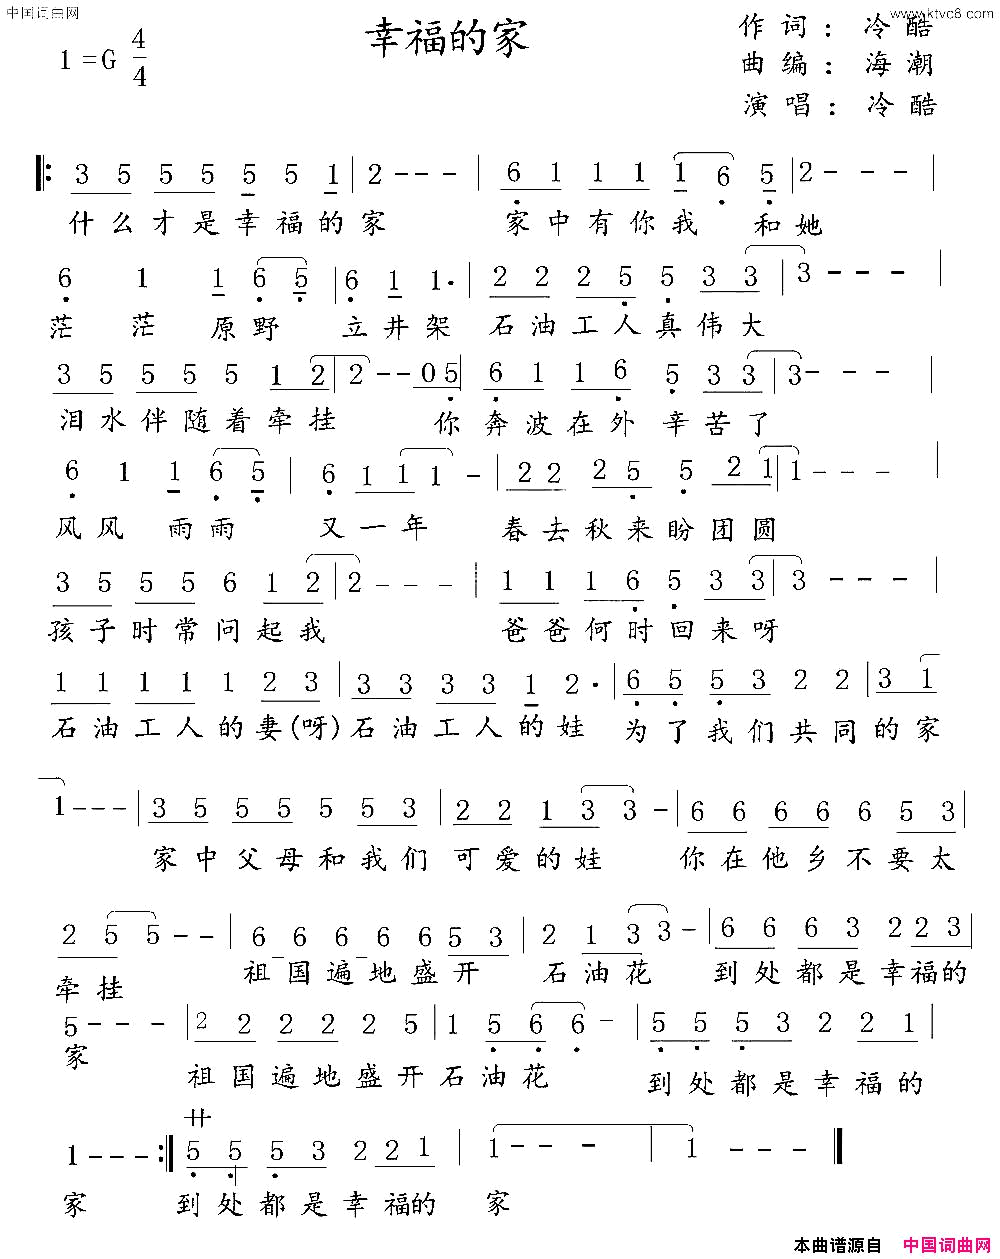 中国词曲网
www.ktvc8.com
幸福的家
1=G 4/4
作词：冷酷
曲编：海潮
演唱：冷酷
3 5 5 5 5 5 1 | 2 - - - | 6 1 1 1 1 6 5 | 2 - - - |
什么才是幸福的家 家中有你我 和她
6 1 1 6 5 | 6 1 1· | 2 2 2 5 5 3 3 | 3 - - - |
茫茫原野 立井架 石油工人真伟大
3 5 5 5 5 1 2 | 2 - - 0 5 | 6 1 1 6 5 3 3 | 3 - - - |
泪水伴随着牵挂 你奔波在外辛苦了
6 1 1 6 5 | 6 1 1 1 - | 2 2 2 5 5 2 1 | 1 - - - |
风风雨雨 又一年 春去秋来盼团圆
3 5 5 5 6 1 2 | 2 - - - | 1 1 1 6 5 3 3 | 3 - - - |
孩子时常问起我 爸爸何时回来呀
1 1 1 1 1 2 3 | 3 3 3 3 1 2· | 6 5 5 3 2 2 | 3 1
石油工人的妻(呀)石油工人的娃 为了我们共同的家
1 - - - | 3 5 5 5 5 5 3 | 2 2 1 3 3 - | 6 6 6 6 6 5 3 |
家中父母和我们 可爱的娃 你在他乡不要太
2 5 5 - - | 6 6 6 6 6 5 3 | 2 1 3 3 - | 6 6 6 3 2 2 3 |
牵挂 祖国遍地盛开 石油花 到处都是幸福的
5 - - - | 2 2 2 2 2 5 | 1 5 6 6 - | 5 5 5 3 2 2 1 |
家 祖国遍地盛开石油花 到处都是幸福的
1 - - - :| 5 5 5 3 2 2 1 | 1 - - - | 1 - - - ||
家 到处都是幸福的 家
本曲谱源自 中国词曲网